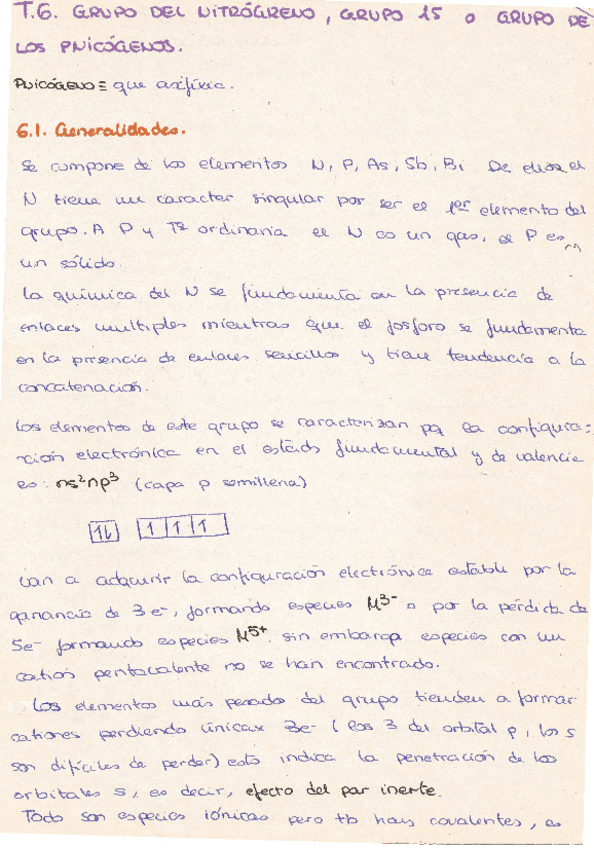 T.6. GRUPO DEL NITRÓGENO, GRUPO 15 o GRUPO DE
LOS PNICÓGENOS.
PNICÓGENO ≡ que asfixia.
6.1. Generalidades.
Se compone de los elementos N, P, As, Sb, Bi De ellos el
N tiene un caracter singular por ser el 1er elemento del
grupo. A P y Tª ordinaria el N es un gas, el P es
un sólido.
La química del N se fundamenta en la presencia de
enlaces multiples mientras que el fosforo se fundamenta
en la presencia de enlaces sencillos y tiene tendencia a la
concatenación.
Los elementos de este grupo se caracterizan pq la configura=
ción electrónica en el estado fundamental y de valencia
es: ns²np³ (capa p semillena)
1L 1 1 1
Van a adquirir la configuración electrónica estable por la
ganancia de 3e⁻, formando especies M³⁻ o por la pérdida de
5e⁻ formando especies M⁵⁺. sin embargo especies con un
catión pentavalente no se han encontrado.
Los elementos más pesado del grupo tienden a formar
cationes perdiendo únicax 3e⁻ (los 3 del orbital p, los s
son difíciles de perder) esto indica la penetración de los
orbitales s, es decir, efecto del par inerte.
Todo son especies iónicas pero tb hay covalentes, es